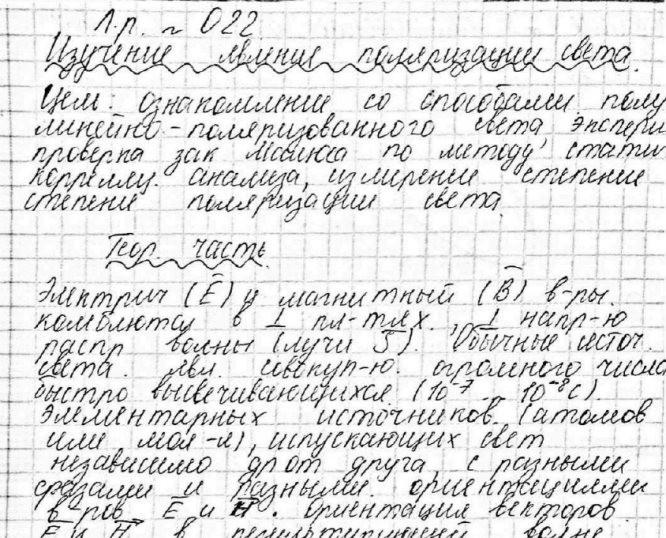 Л.р. ~ 022
Изучение явление поляризации света.
Цели: ознакомление со способами полу
линейно-поляризованного света экспери
проверка зак Малюса по методу стати
коррелл. анализа, измерение степение
степение поляризации света.
Теор. часть.
Электрич (Е) и магнитный (В) в-ры.
колеблются в ⊥ пл-тях, ⊥ напр-ю
распр волны (лучи S). Обычные источ.
света. явл. совокуп-ю. огромного числа
быстро высвечивающихся (10⁻⁷ .. 10⁻⁸ с)
элементарных источников (атомов
или мол-л), испускающих свет
независимо др от друга, с разными
фазами и разными. ориентациями
в-ров Е и Н. ориентация векторов
Е и Н в результирующей волне